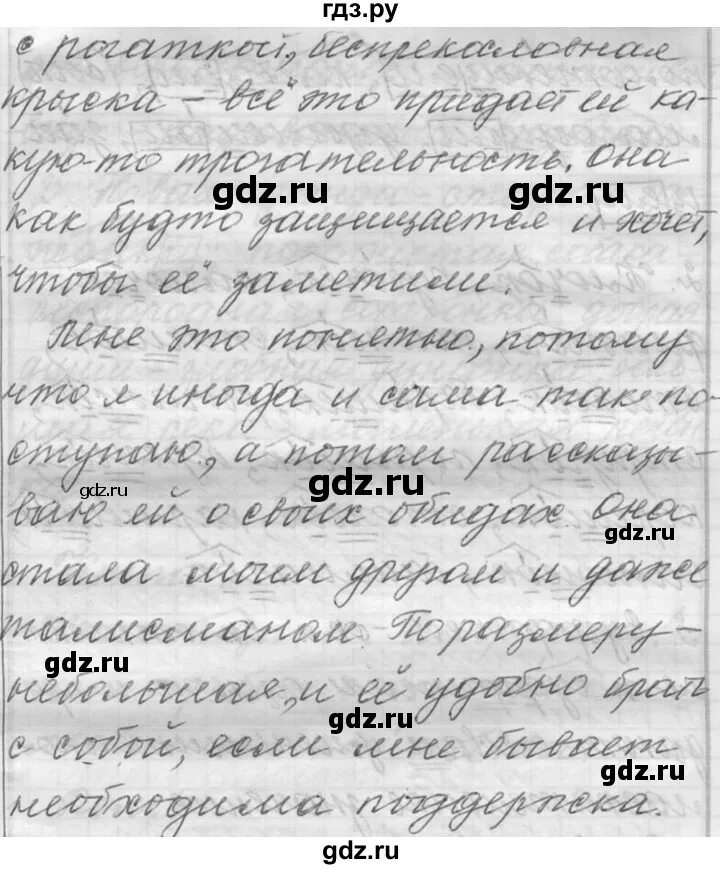 гдз.ру
с рогаткой, беспрекословная
крыска – всё это придаёт ей ка-
кую-то трогательность. Она
gdz.ru gdz.ru
как будто защищается и хочет,
чтобы её заметили.
Мне это понятно, потому
что я иногда и сама так по-
ступаю, а потом рассказы-
gdz.ru gdz.ru
ваю ей о своих обидах. Она
gdz.ru
стала моим другом и даже
талисманом. По размеру –
gdz.ru
небольшая, и её удобно брать
gdz.ru
с собой, если мне бывает
gdz.ru
необходима поддержка.
gdz.ru